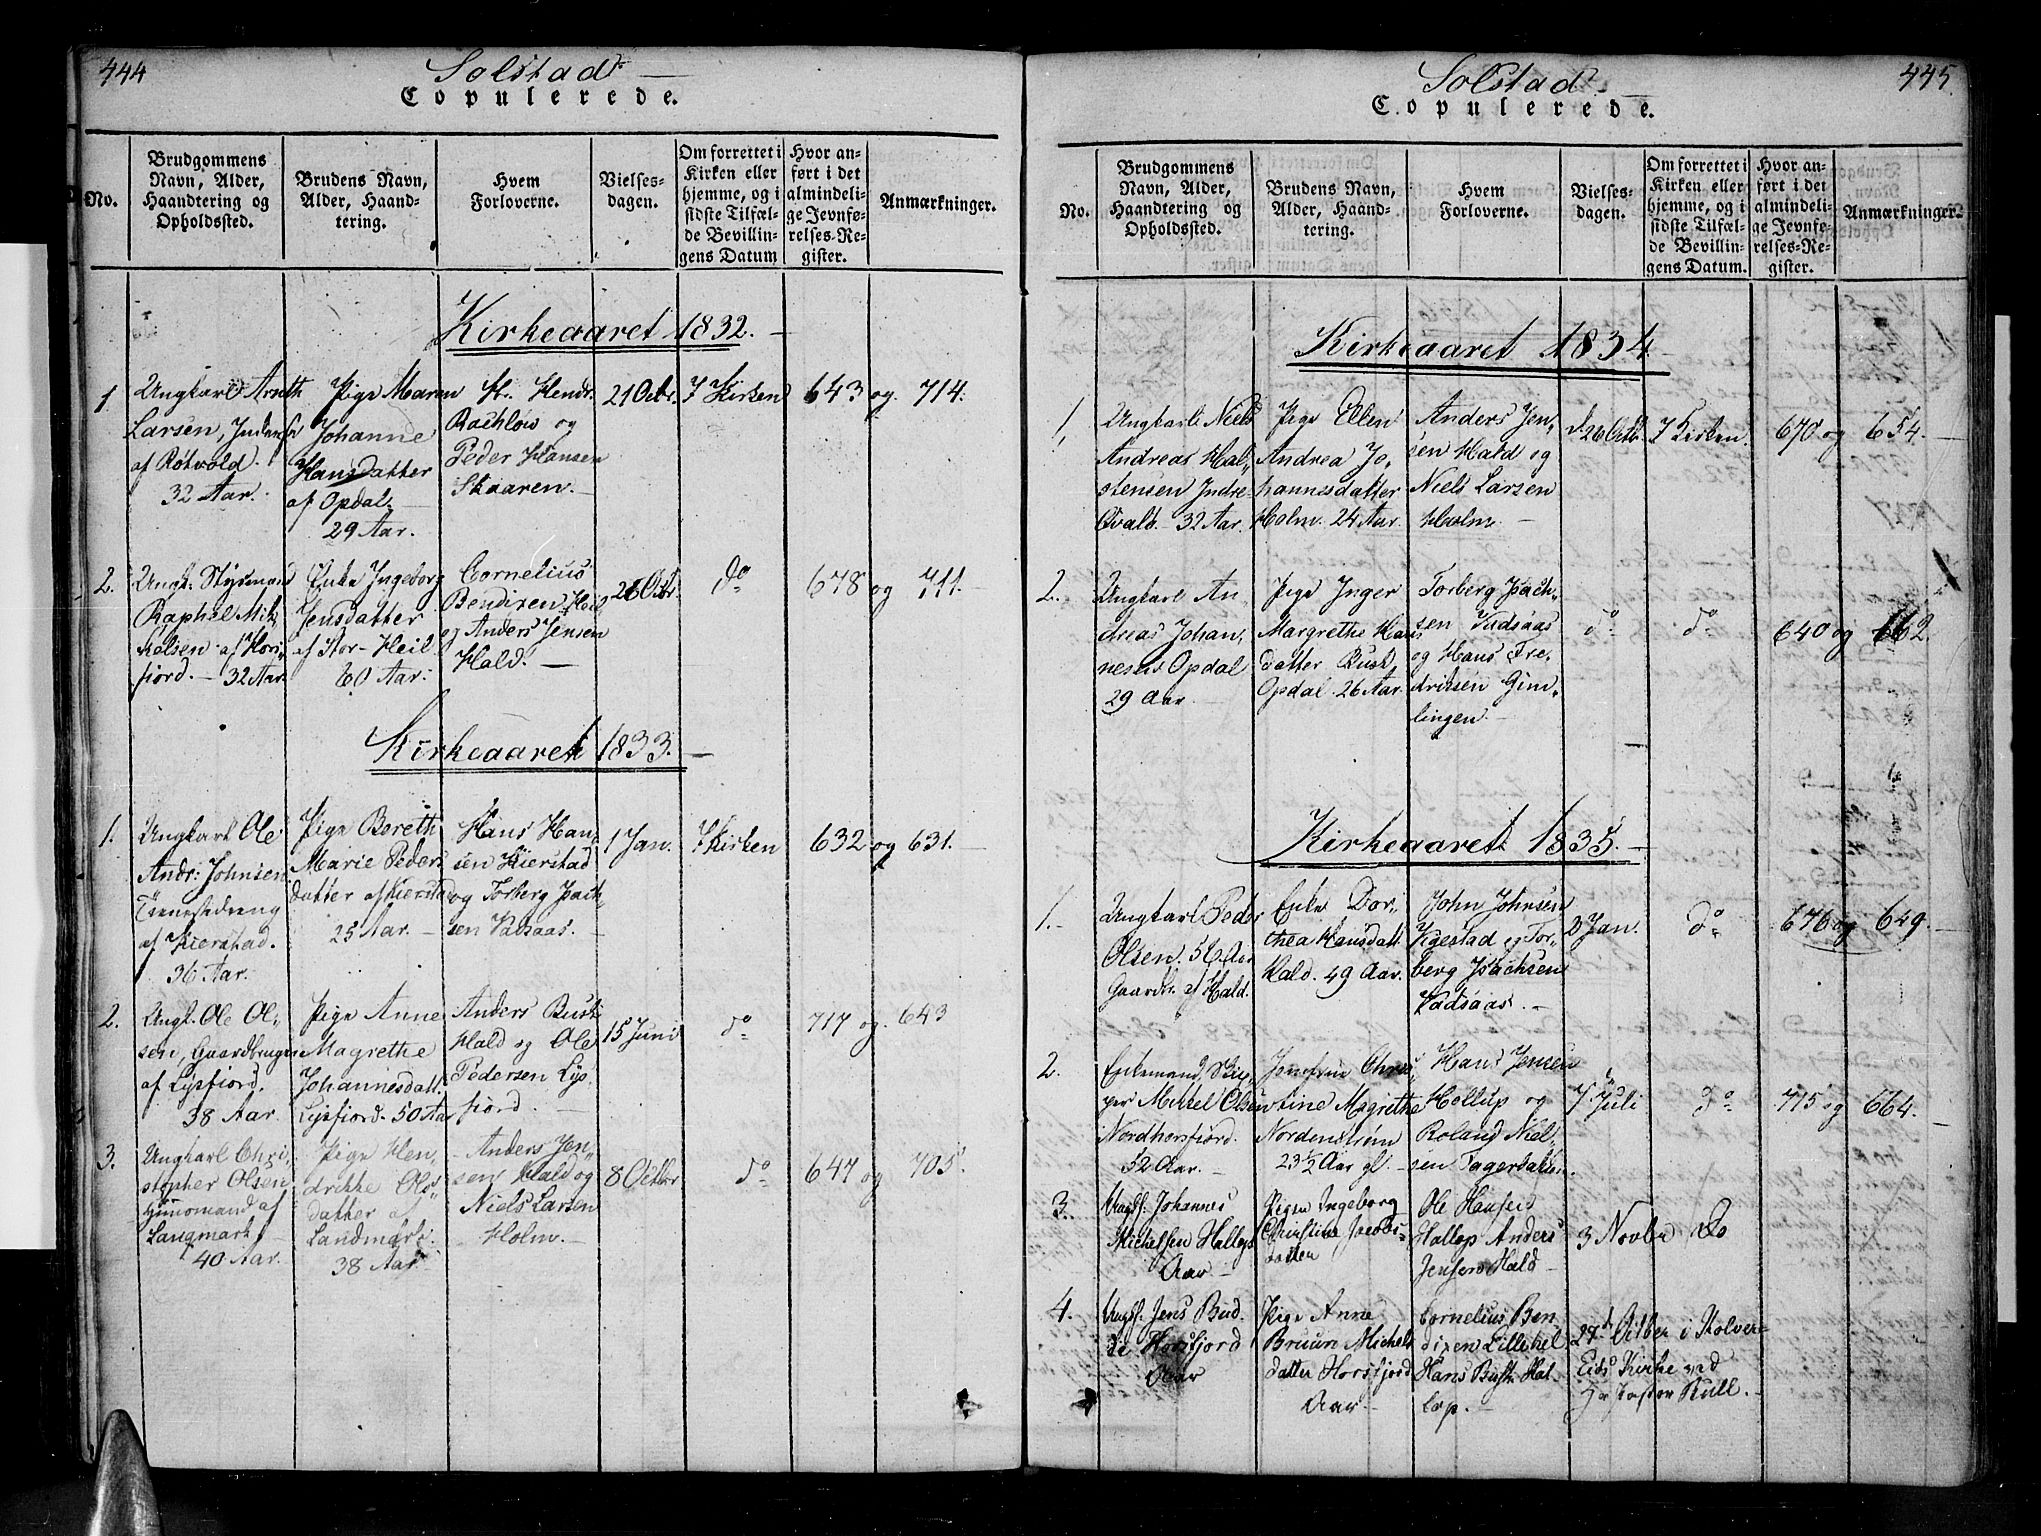 444
Solstad
Copulerede.
No.
Brudgommens
Navn, Alder,
Haandtering og
Opholdssted.
Brudens Navn,
Alder, Haand-
tering.
Hvem
Forloverne.
Vielses-
dagen.
Om forrettet i
Kirken eller
hjemme, og i
sidste Tilfæl-
de Bevillin-
gens Datum
Hvor an-
ført i det
almindeli-
ge Jevnfø-
relses-Re-
gister.
Anmærkninger.
Kirkeaaret 1832.
1
Ungkarl Arnth
Larsen,
af Røtvold.
32 Aar.
Pige Maren
Johanne
Hansdatter
af Opdal.
29 Aar.
H. Hendr.
Rachlow og
Peder Hansen
Skaaren.
21 Octr.
I Kirken
643 og 714.
2.
Ungk. Styrmand
Raphel Mik-
kelsen af Hors-
fiord. 32 Aar.
Enke Ingeborg
Jensdatter
af Stor-Heil
60 Aar.
Cornelius
Bendixen Heil
og Anders Jensen
Hald.
28 Octr.
do
678 og 711.
Kirkeaaret 1833.
1.
Ungkarl Ole
Andr: Johnsen
Tienestedreng
af Kierstad.
36 Aar.
Pige Bereth
Marie Peders
datter af Kierstad
25 Aar.
Hans Han-
sen Kierstad
og Torberg Isach-
sen Vadsaas.
1 Jan.
I Kirken
632 og 631.
2.
Ungk. Ole Ol-
sen, Gaardbruger
af Lysfiord.
38 Aar.
Pige Anne
Magrethe
Johannesdatt.
Lysfiord. 50 Aar
Anders Busk
Hald og Ole
Pedersen Lys-
fiord.
15 Juni
do
717 og 643
3.
Ungkarl Chri-
stopher Olsen
Huusmand af
Langmark.
40 Aar.
Pige Hen-
drikke Ols-
datter af
Landmark.
38 Aar.
Anders Jen-
sen Hald og
Niels Larsen
Holm.
8 Octbr
do
647 og 705.
445.
Solstad
Copulerede.
No.
Brudgommens
Navn, Alder,
Haandtering og
Opholdssted.
Brudens Navn,
Alder, Haand-
tering.
Hvem
Forloverne.
Vielses-
dagen.
Om forrettet i
Kirken eller
hjemme, og i
sidste Tilfæl-
de Bevillin-
gens Datum.
Hvor an-
ført i det
almindeli-
ge Jevnfø-
relses-Re-
gister.
Anmærkninger.
Kirkeaaret 1834.
1,
Ungkarl Niels
Andreas Hal-
stensen Indre
32 Aar.
Pige Ellen
Andrea Jo-
hannesdatter
Holm. 24 Aar.
Anders Jen-
sen Hald og
Niels Larsen
Holm.
d. 26 Octb.
I Kirken.
670 og 654.
2.
Ungkarl An-
dreas Johan-
nesen Opdal
29 Aar.
Pige Inger
Margrethe Hans
datter Busk,
Opdal. 26 Aar.
Torberg Isach-
sen Vadsaas
og Hans Fre-
driksen Gim-
lingen.
do
do
640 og 662.
Kirkeaaret 1835.
1.
Ungkarl Peder
Olsen. 56 Aar
Gaardbr. af Hald.
Enke Dor-
thea Hansdatt.
Hald. 49 Aar.
John Johnsen
Vigestad og Tor-
berg Isachsen
Vadsaas.
3 Jan.
do
676 og 649.
2.
Enkemand, Skip-
per Mikkel Olsen
Nordhorsfjord.
52 Aar.
Jomfrue Chris-
tine Magrethe
Nordenstrøm
23 1/2 Aar gl.
Hans Jensen
Hollup og
Roland Niel-
sen Fagerdalen.
7 Juli
do
715 og 664.
3.
Ungk. Johannes
Michelsen Hallop
Aar.
Pigen Ingeborg
Christine Jacobs-
datter
Ole Hansen
Hallop Anders
Jensen Hald
3 Novbr
Do
4.
Ungk. Jens Bud-
Horsfjord
Aar
Pige Anne
Bruun Michels
datter Horsfjord
Aar.
Cornelius Ben-
dixen Lilleheil
Hans Busk Hal-
lop.
28 Octber i Kolver-
Eids Kirke ved
Hr Pastor Kull.